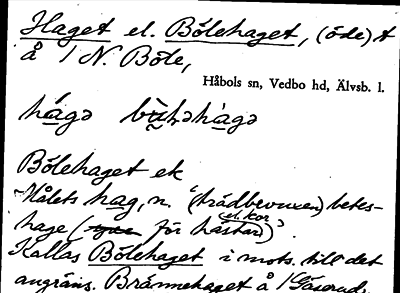 Haget el. Bölehaget, (öde) t
å 1 N. Böle,
Håbols sn, Vedbo hd, Älvsb. l.
hágə
Bölehaget ek
hag, n. "(trädbevuxen) betes-
hage ( för hästar)"
el. kor
Kallas Bölehaget i mots. till det
angräns. Brännehaget å 1 Gåserud.